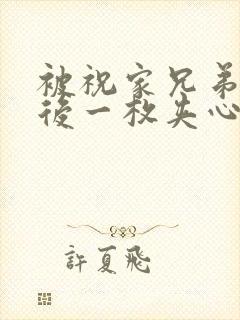 被祝家兄弟
後一枚失心
許夏飛